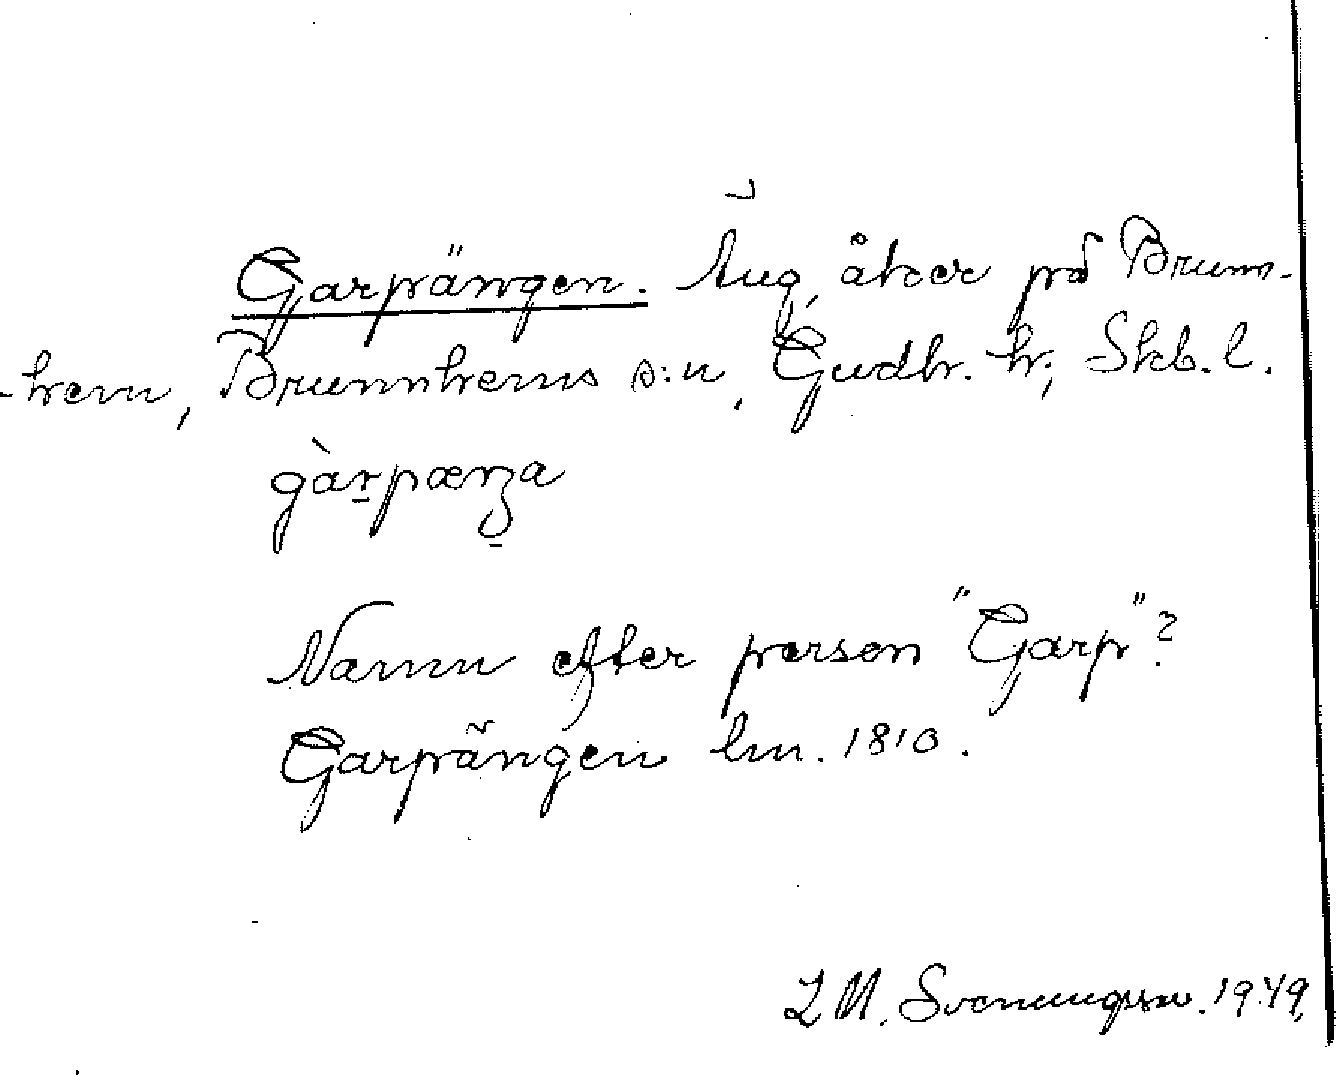 Garpängen. Äng, åker på Brunn-
-hem, Brunnhems s:n, Gudh. hr., Skb. l.
gàrpænga
Namn efter person "Garp"?
Garpängen lm. 1810.
Svenungsson. 1949,